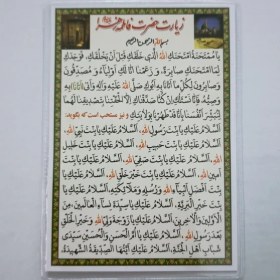 زیارت حضرت فاطمه زهرا
بسم الله الرحمن الرحیم
یا مُمْتَحَنَةُ امْتَحَنَکِ اللهُ الَّذی خَلَقَکِ قَبْلَ اَنْ یَخْلُقَکِ، فَوَجَدَکِ
لِمَا امْتَحَنَکِ صابِرَةً، وَ زَعَمْنا اَنّا لَکِ اَوْلِیاءُ وَ مُصَدِّقُونَ
وَ صابِرُونَ لِکُلِّ ما اَتانا بِهِ اَبُوکِ صَلَّی اللهُ عَلَیْهِ وَ آلِهِ وَ اَتی بِهِ
وَصِیُّهُ، فَاِنّا نَسْئَلُکِ اِنْ کُنّا صَدَّقْناکِ اِلّا اَلْحَقْتِنا بِتَصْدیقِنا لَهُما
لِنُبَشِّرَ اَنْفُسَنا بِاَنّا قَدْ طَهُرْنا بِوِلایَتِکِ و نیز مستحب است که بگوید:
اَلسَّلامُ عَلَیْکِ یا بِنْتَ رَسُولِ اللهِ، اَلسَّلامُ عَلَیْکِ یا بِنْتَ نَبِیِّ
اللهِ، اَلسَّلامُ عَلَیْکِ یا بِنْتَ حَبیبِ اللهِ، اَلسَّلامُ عَلَیْکِ یا بِنْتَ خَلیلِ
اللهِ، اَلسَّلامُ عَلَیْکِ یا بِنْتَ صَفِیِّ اللهِ، اَلسَّلامُ عَلَیْکِ یا بِنْتَ اَمینِ
اللهِ، اَلسَّلامُ عَلَیْکِ یا بِنْتَ خَیْرِ خَلْقِ اللهِ، اَلسَّلامُ عَلَیْکِ یا
بِنْتَ اَفْضَلِ اَنْبِیاءِ اللهِ وَ رُسُلِهِ وَ مَلائِکَتِهِ، اَلسَّلامُ عَلَیْکِ یا
بِنْتَ خَیْرِ الْبَرِیَّةِ، اَلسَّلامُ عَلَیْکِ یا سَیِّدَةَ نِساءِ الْعالَمینَ، مِنَ
الْاَوَّلینَ وَ الْاخِرینَ، اَلسَّلامُ عَلَیْکِ یا زَوْجَةَ وَلِیِّ اللهِ وَ خَیْرِ الْخَلْقِ
بَعْدَ رَسُولِ اللهِ، اَلسَّلامُ عَلَیْکِ یا اُمَّ الْحَسَنِ وَ الْحُسَیْنِ سَیِّدَیْ
شَبابِ اَهْلِ الْجَنَّةِ، اَلسَّلامُ عَلَیْکِ اَیَّتُهَا الصِّدّیقَةُ الشَّهیدَةُ،